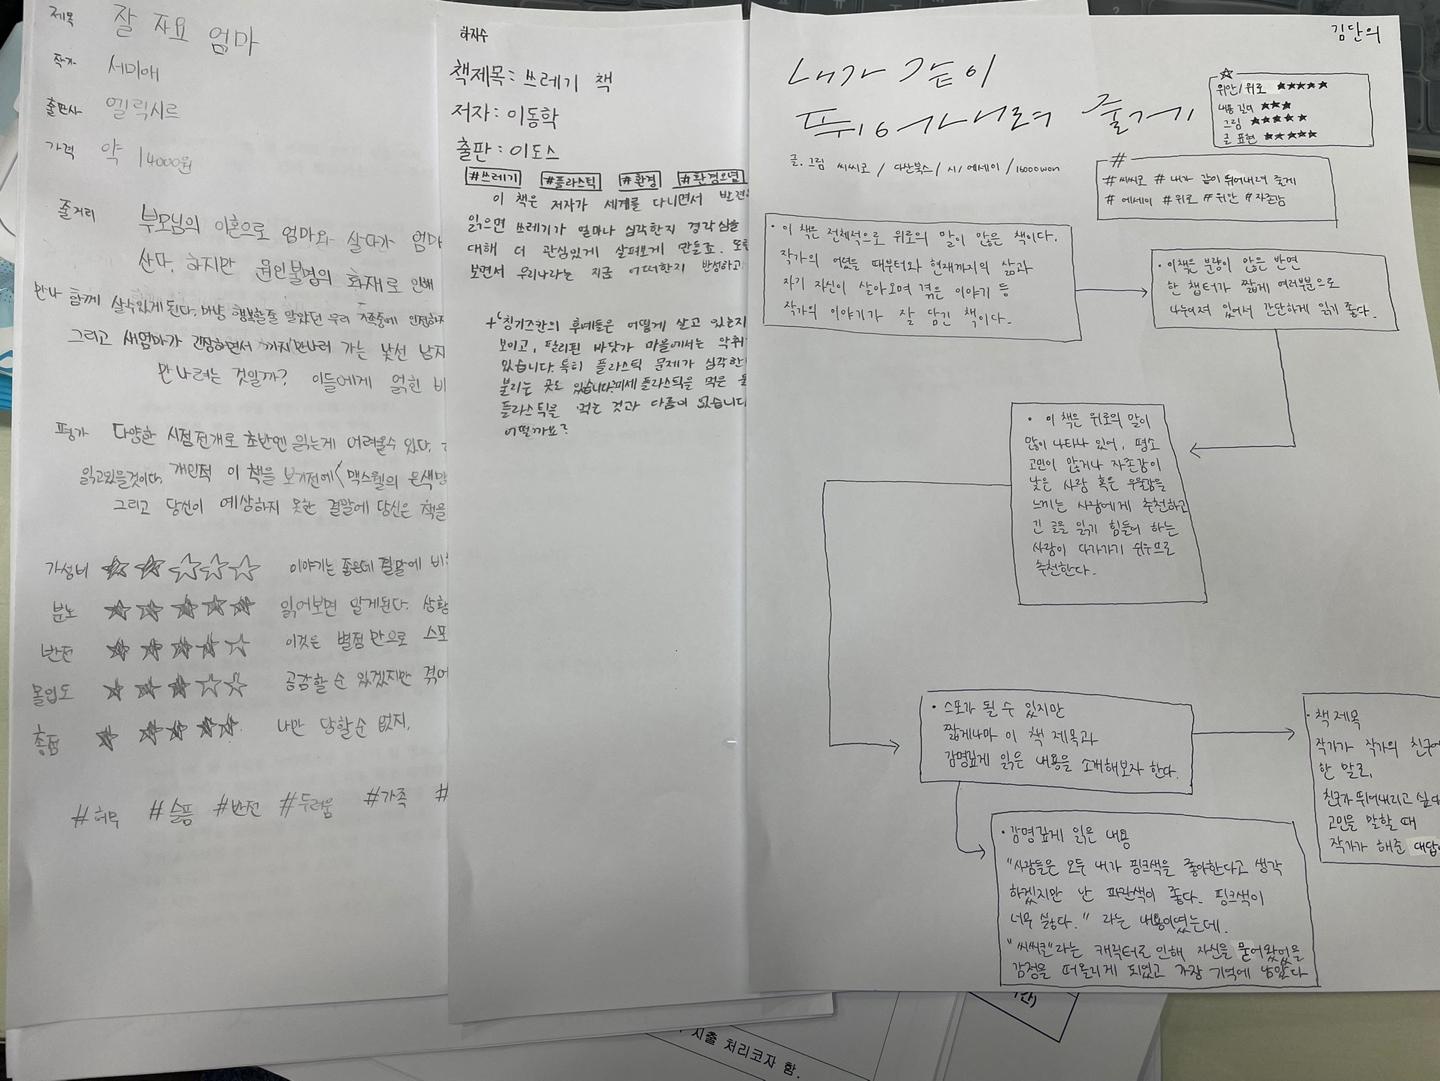 제목 잘 자요 엄마
작가 서미애
출판사 엘릭시르
가격 약 14000원
줄거리 부모님의 이혼으로 엄마와 살다가 엄마
산다. 하지만 원인불명의 화재로 인해
만나 함께 살수있게된다. 마냥 행복할줄 알았던 우리 가족중에
그리고 새엄마가 긴장하면서 까지 만나러 가는 낯선 남자
만나려는 것일까? 이들에게 얽힌 비
평가 다양한 시점전개로 초반엔 읽는게 어려울수 있다.
읽고있을것이다. 개인적 이 책을 보기전에
그리고 당신이 예상하지 못한 결말에 당신은 책을
가성비 ★★☆☆☆ 이야기는 좋은데 결말에 비
분노 ★★★★★ 읽어보면 알게된다. 상황
반전 ★★★★☆ 이것은 별점만으로 스포
몰입도 ★★★☆☆ 공감할 순 있겠지만 겪어
총점 ★★★★★ 나만 당할순 없지.
#허무 #슬픔 #반전 #두려움 #가족 #
하지수
책제목: 쓰레기 책
저자: 이동학
출판: 이도스
#쓰레기 #플라스틱 #환경 #환경오염
이 책은 저자가 세계를 다니면서 발견
읽으면 쓰레기가 얼마나 심각한지 경각심을
대해 더 관심있게 살펴보게 만들죠. 또한
보면서 우리나라는 지금 어떠한지 반성하고
+ '칭기즈칸의 후예들은 어떻게 살고 있는지
보이고, 필리핀 바닷가 마을에서는 악취
있습니다. 특히 플라스틱 문제가 심각한
불리는 곳도 있습니다. 미세 플라스틱을 먹은
플라스틱을 먹는 것과 다름이 없습니다
어떨까요?
김단의
내가 같이
뛰어내려 줄게
글.그림 씨씨코 / 다산북스 / 시/에세이 / 16000won
☆
위안/위로 ★★★★★
내용 깊이 ★★★
그림 ★★★★★
글 표현 ★★★★★
#
#씨씨코 #내가 같이 뛰어내려 줄게
#에세이 #위로 #위안 #자존감
· 이 책은 전체적으로 위로의 말이 많은 책이다.
작가의 어렸을 때부터와 현재까지의 삶과
자기 자신이 살아오며 겪은 이야기 등
작가의 이야기가 잘 담긴 책이다.
· 이책은 분량이 많은 반면
한 챕터가 짧게 여러부분으로
나누어져 있어서 간단하게 읽기 좋다.
· 이 책은 위로의 말이
많이 나타나 있어, 평소
고민이 많거나 자존감이
낮은 사람 혹은 우울감을
느끼는 사람에게 추천하고
긴 글을 읽기 힘들어 하는
사람이 다가가기 쉬우므로
추천한다.
· 스포가 될 수 있지만
짧게나마 이 책 제목과
감명깊게 읽은 내용을 소개해보자 한다.
· 책 제목
작가가 작가의 친구에
한 말로,
친구가 뛰어내리고 싶다
고민을 말할 때
작가가 해준 대답
· 감명깊게 읽은 내용
"사람들은 모두 내가 핑크색을 좋아한다고 생각
하겠지만 난 파란색이 좋다. 핑크색이
너무 싫다." 라는 내용이였는데.
"씨씨코"라는 캐릭터로 인해 자신을 묻어왔었을
감정을 떠올리게 되었고 가장 기억에 남았다
지출 처리코자 함.